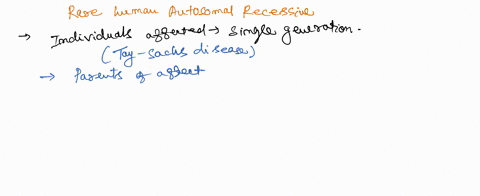 Rare human Autosomal Recessive
→ Individuals affected → single generation.
(Tay-sachs disease)
→ Parents of affect